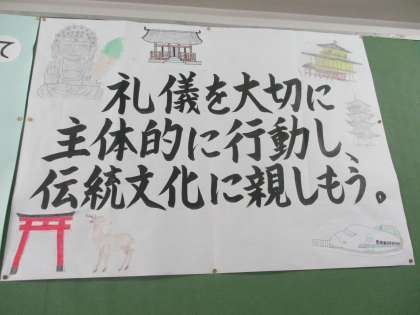 礼儀を大切に
主体的に行動し、
伝統文化に親しもう。
て